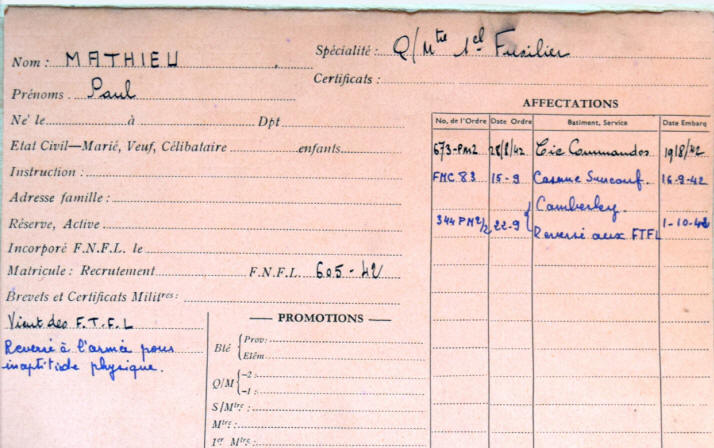 Nom : MATHIEU
Prénoms . Paul
Né le à Dpt
Etat Civil—Marié, Veuf, Célibataire enfants
Instruction :
Adresse famille :
Réserve, Active
Incorporé F.N.F.L. le
Matricule : Recrutement F.N.F.L. 605-42
Brevets et Certificats Militres :
Vient des F.T.F.L
Reversé à l'armée pour
inaptitude physique.
Spécialité : Q/Mtre 1cl Fusilier
Certificats :
AFFECTATIONS
No. de l'Ordre Date Ordre Batiment, Service Date Embarq
673-PM2 28/8/42 Cie Commandos 19/8/42
FNC 83 15-9 Caserne Surcouf. 16-9-42
Camberley.
344 PM2/2 22-9 Reversé aux FTFL 1-10-42
PROMOTIONS
Blé Prov:
Elém
Q/M -2 :
-1 :
S/Mtre :
Mtre :
1er Mtre :